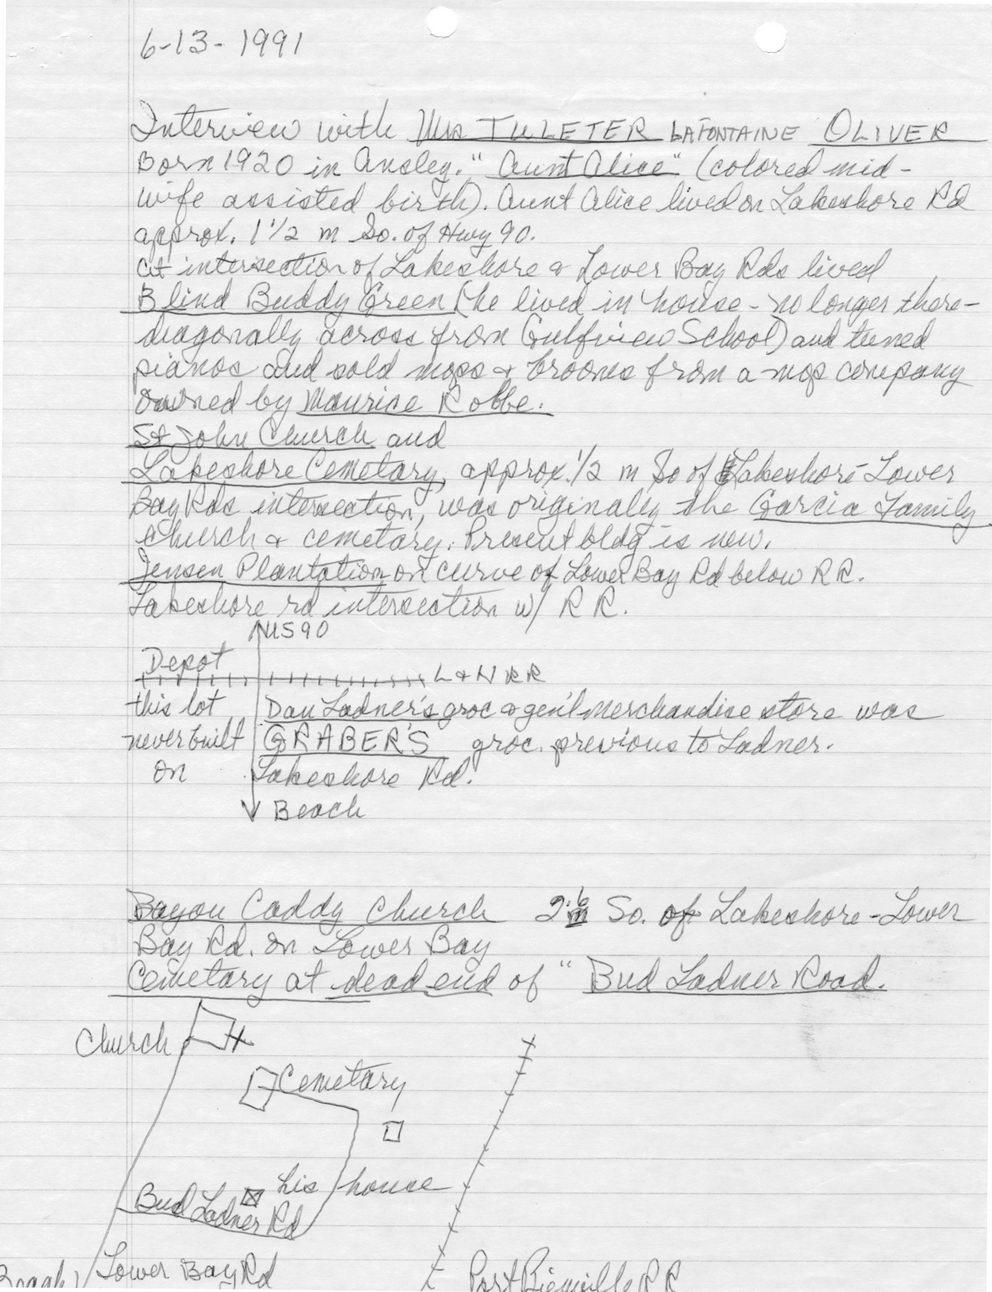 6-13-1991
Interview with Mrs IULETER LAFONTAINE OLIVER
Born 1920 in Ansley. "Aunt Alice" (colored mid-
wife assisted birth). Aunt Alice lived on Lakeshore Rd
approx. 1 1/2 m So. of Hwy 90.
At intersection of Lakeshore & Lower Bay Rds lived
Blind Buddy Green (he lived in house - no longer there -
diagonally across from Gulfview School) and tuned
pianos and sold mops & brooms from a mop company
owned by Maurice Robbe.
St John Church and
Lakeshore Cemetary, approx. 1/2 m So of Lakeshore-Lower
Bay Rds intersection, was originally the Garcia Family
Church & cemetary. Present bldg is new.
Jensen Plantation on curve of Lower Bay Rd below R R.
Lakeshore rd intersection w/ R R.
US 90
Depot
L & N RR
this lot Dan Ladner's groc & gen'l merchandise store was
never built GRABER'S groc. previous to Ladner.
on Lakeshore Rd.
Beach
Bayou Caddy Church 2.6 So. of Lakeshore-Lower
Bay Rd. on Lower Bay
Cemetary at dead end of "Bud Ladner Road.
Church
Cemetary
his house
Bud Ladner Rd
Lower Bay Rd
Port Bienville R R